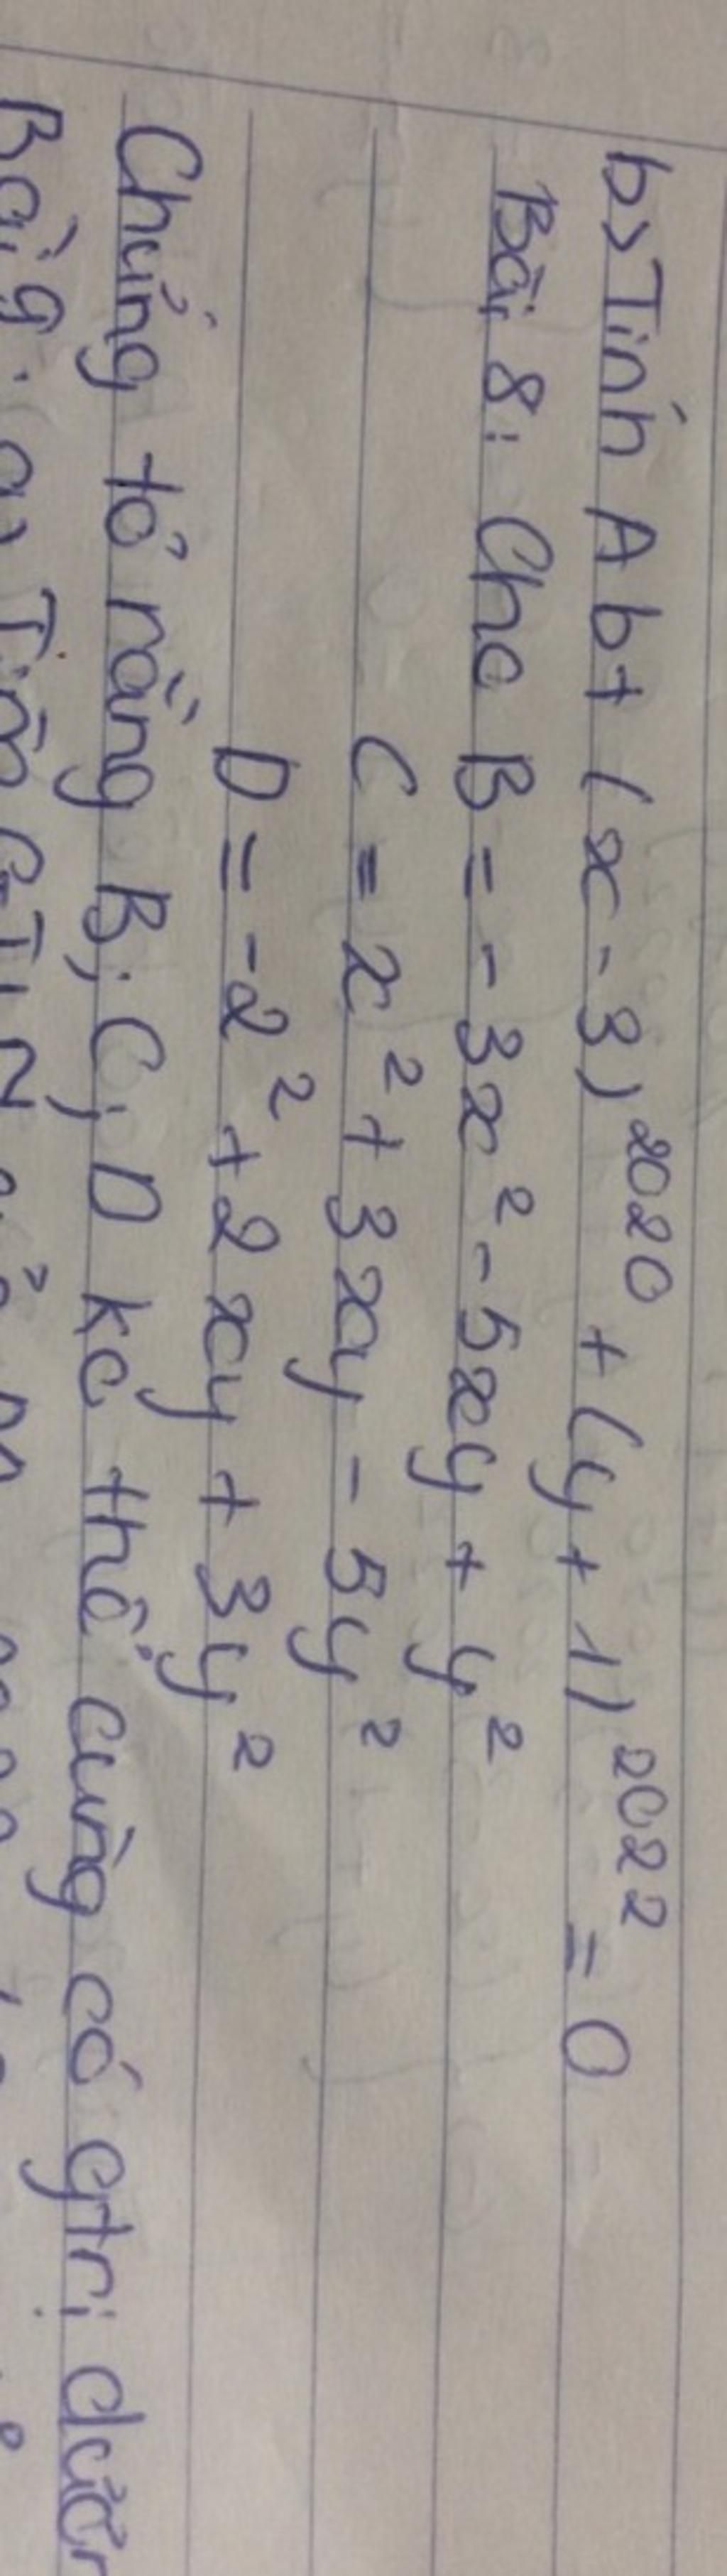 b> Tính A bt (x - 3)²⁰²⁰ + (y + 1)²⁰²² = 0
Bài 8: Cho B = - 3x² - 5xy + y²
C = x² + 3xy - 5y²
D = -2² + 2xy + 3y²
Chứng tỏ rằng B; C; D ko thể cùng có gtrị dươn
Bài 9: a> Tìm GTLN